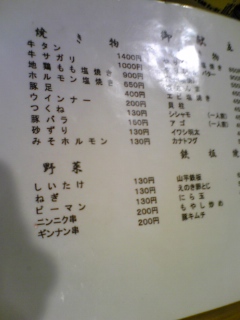 焼き物
牛タン 1400円
牛サガリ 1000円
地鶏もも塩焼き 900円
ホルモン塩焼き 650円
豚足 400円
ウインナー 200円
つくね 200円
豚バラ 150円
砂ずり 130円
みそホルモン 130円
野菜
しいたけ 130円
ねぎ 130円
ピーマン 130円
ニンニク串 200円
ギンナン串 200円
御献立
物
バター
塩焼き
貝柱
シシャモ (一人前)
アゴ (一人前)
イワシ明太
カナトフグ
鉄板焼
山芋鉄板
えのき卵とじ
にら玉
もやし炒め
豚キムチ